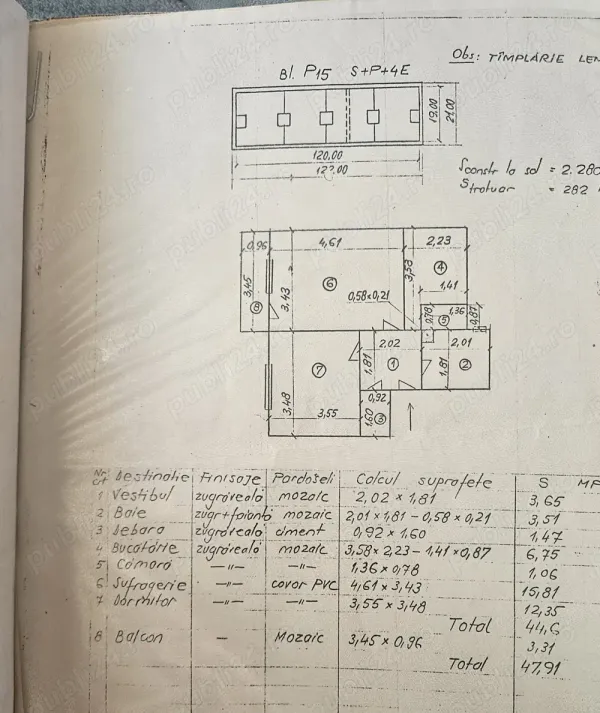 Obs: TÎMPLĂRIE LEN
Bl. P15 S+P+4E
19.00
21.00
120.00
122.00
Sconstr la sol = 2.280
Strotuar = 282
0,96
4,61
2,23
3,58
4
3,45
3,43
6
1,41
8
0,58x0,21
0,78
1,36
5
0,87
2,02
2,01
7
1,81
1
1,81
2
3,48
3,55
0,92
1,60
3
Nr. crt Destinație Finisaje Pardoseli Calcul suprafețe S MP
1 Vestibul zugrăveală mozaic 2,02 x 1,81 3,65
2 Baie zugr+faianță mozaic 2,01 x 1,81 - 0,58 x 0,21 3,51
3 Debara zugrăveală ciment 0,92 x 1.60 1,47
4 Bucătărie zugrăveală mozaic 3,58 x 2,23 - 1,41 x 0,87 6,75
5 Cămară —"— —"— 1,36 x 0,78 1,06
6 Sufragerie —"— covor PVC 4,61 x 3,43 15,81
7 Dormitor —"— —"— 3,55 x 3,48 12,35
Total 44,6
8 Balcon - Mozaic 3,45 x 0,96 3,31
Total 47,91